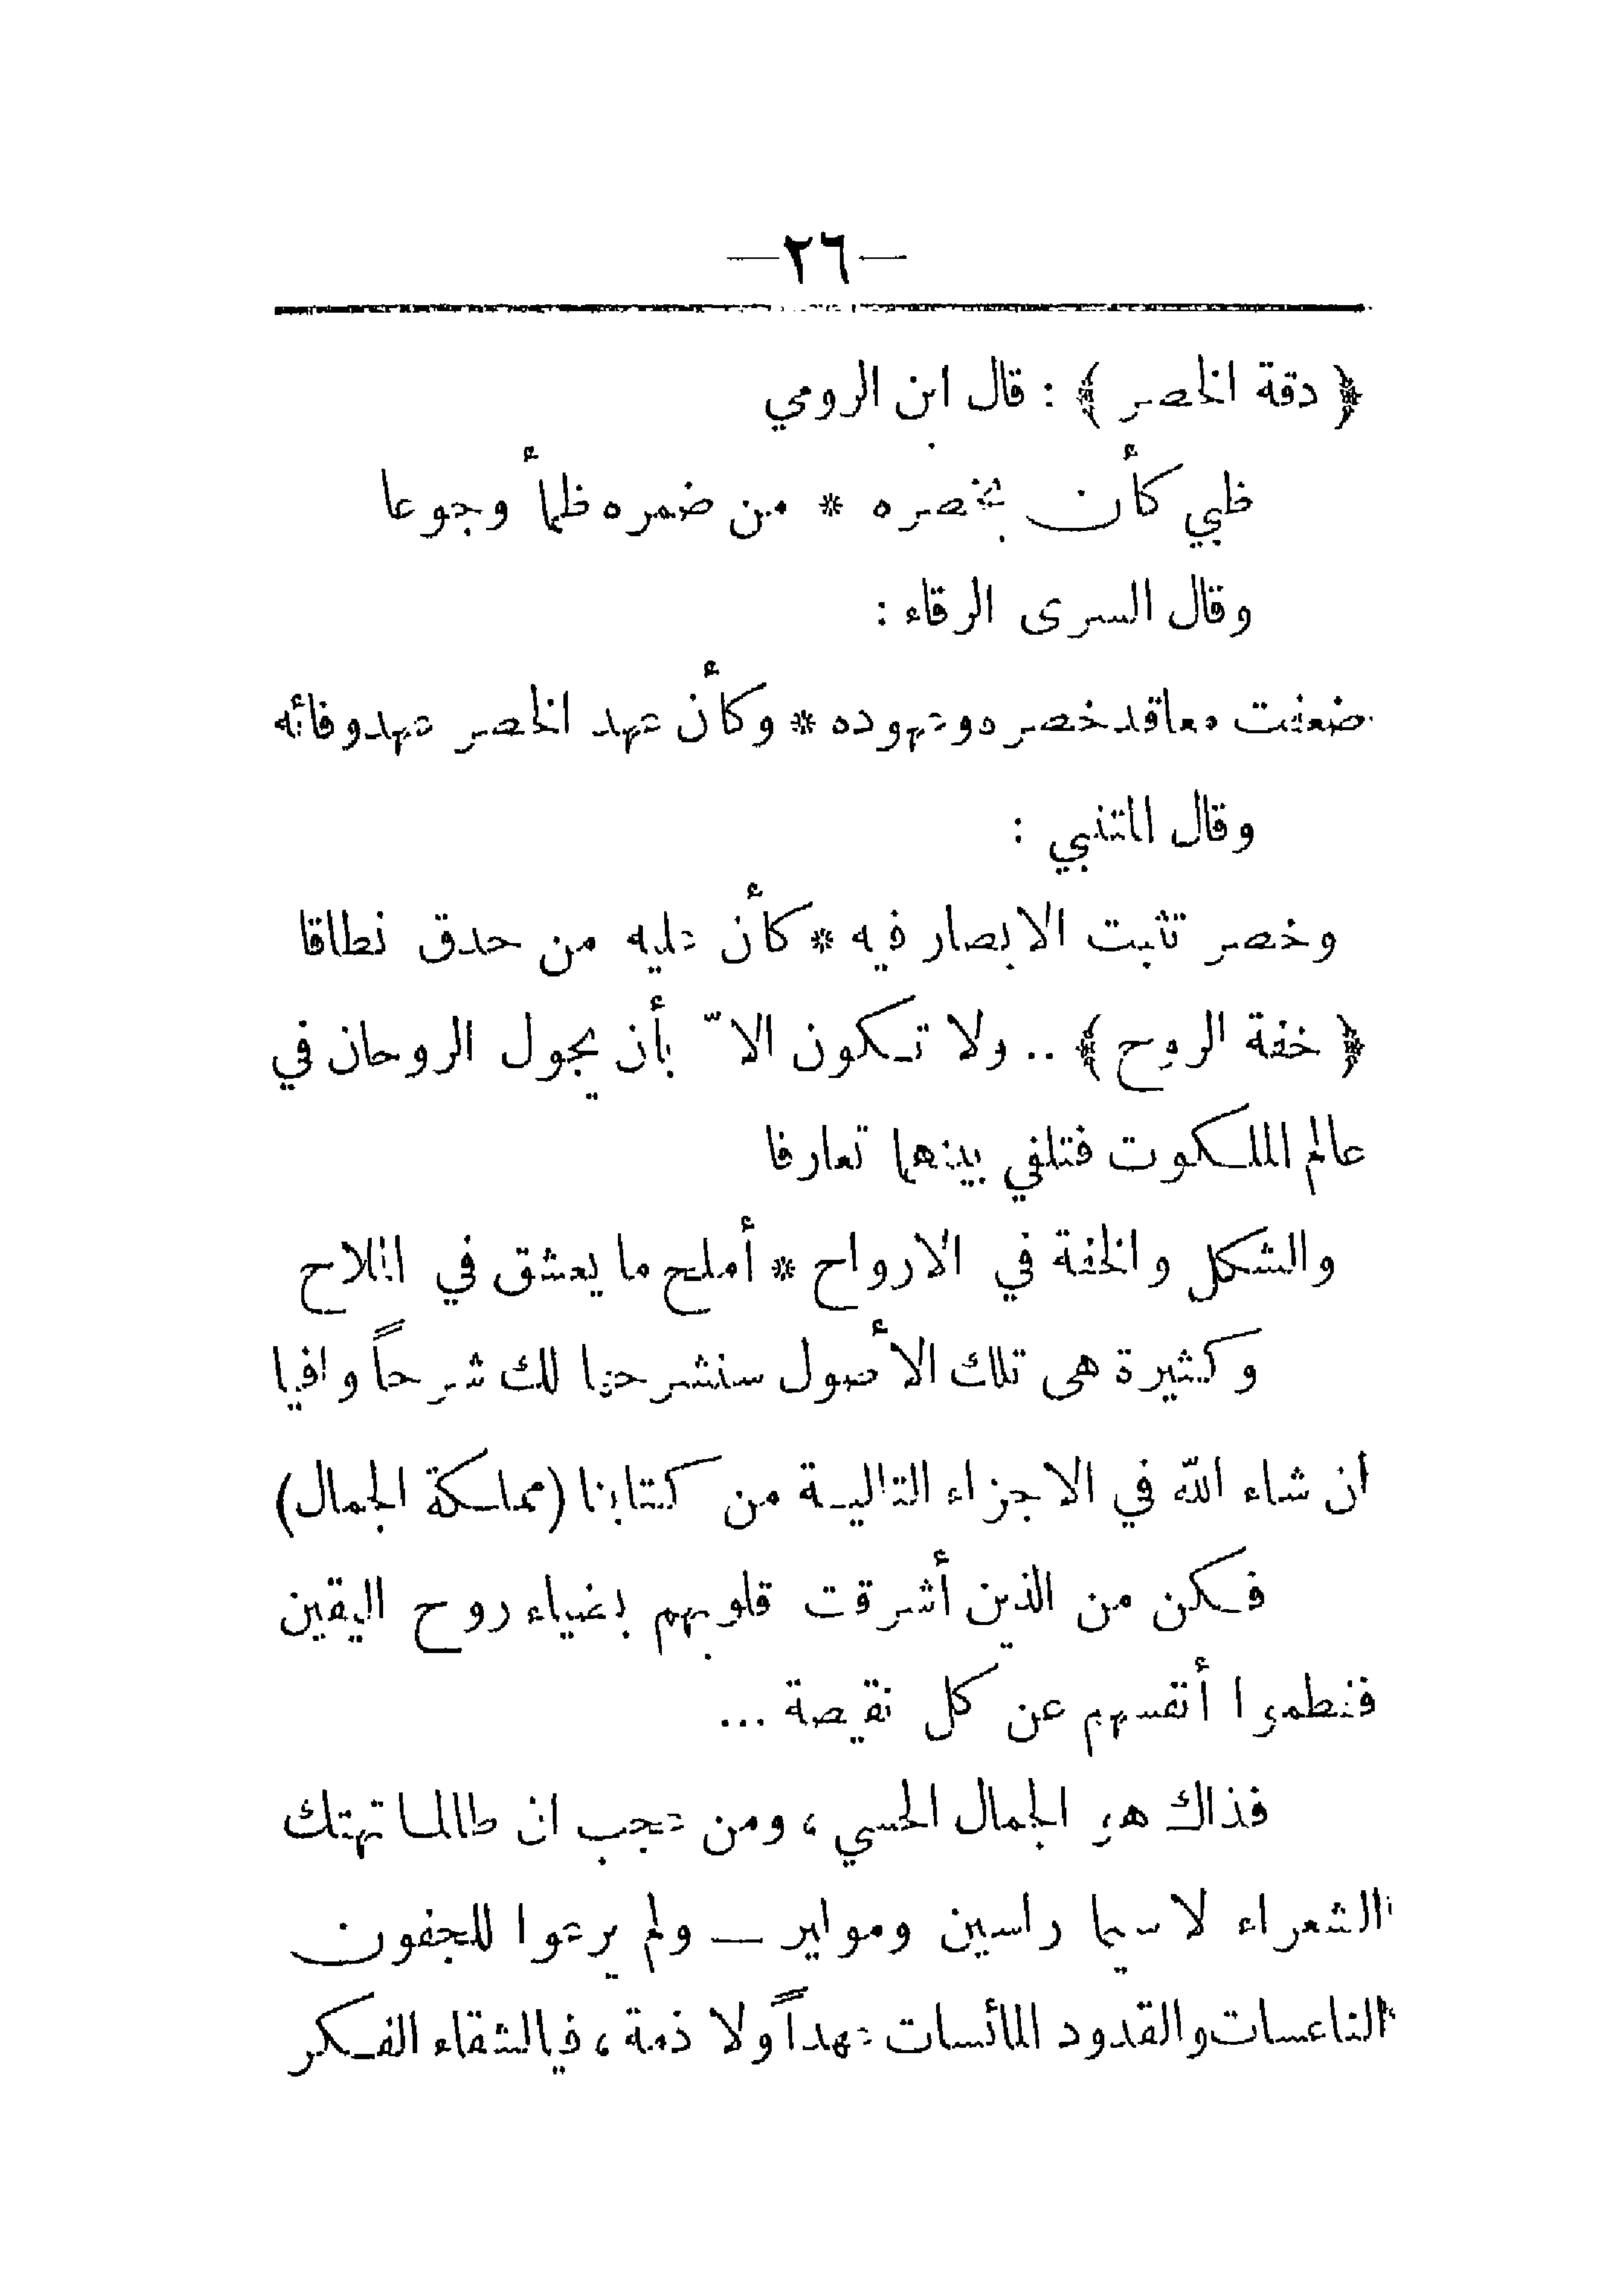 —٢٦—
﴿ دقة الخصر ﴾ : قال ابن الرومي
ظبي كأن بخصره * من ضمره ظمأ وجوعا
وقال السرى الرقاء :
ضعفت معاقد خصره وعهوده * وكأن عهد الخصر عهد وفائه
وقال المتنبي :
وخصر تثبت الابصار فيه * كأن عليه من حدق نطاقا
﴿ خفة الروح ﴾ .. ولا تكون الاّ بأن يجول الروحان في
عالم الملكوت فتلفي بينهما تعارفا
والشكل والخفة في الارواح * أملح ما يعشق في الملاح
وكثيرة هى تلك الأصول سنشرحها لك شرحاً وافيا
ان شاء الله في الاجزاء التالية من كتابنا (مملكة الجمال)
فكن من الذين أشرقت قلوبهم بضياء روح اليقين
ففطموا أنفسهم عن كل نقيصة ...
فذاك هو الجمال الحسي ، ومن عجب ان طالما تهتك
الشعراء لا سيما راسين وموليير — ولم يرعوا للجفون
الناعسات والقدود المائسات عهداً ولا ذمة ، فيا لشقاء الفكر